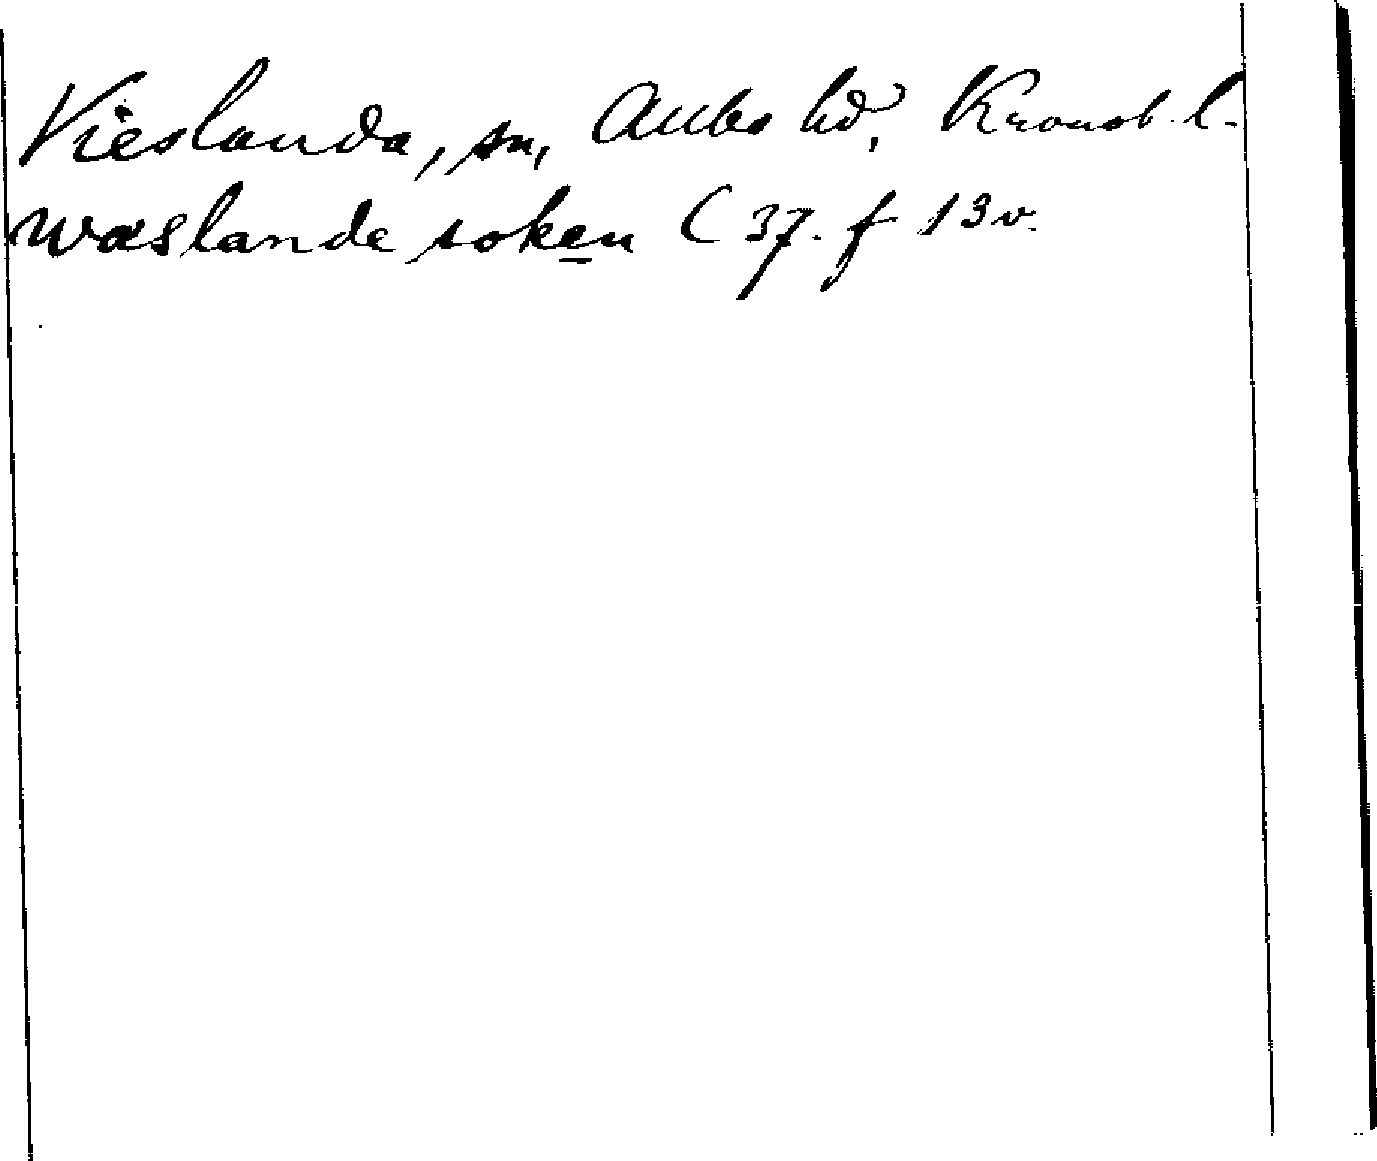 Vieslanda, sn, Allbo hd, Kronob. l.
wæslande soken C 37. f 13v.